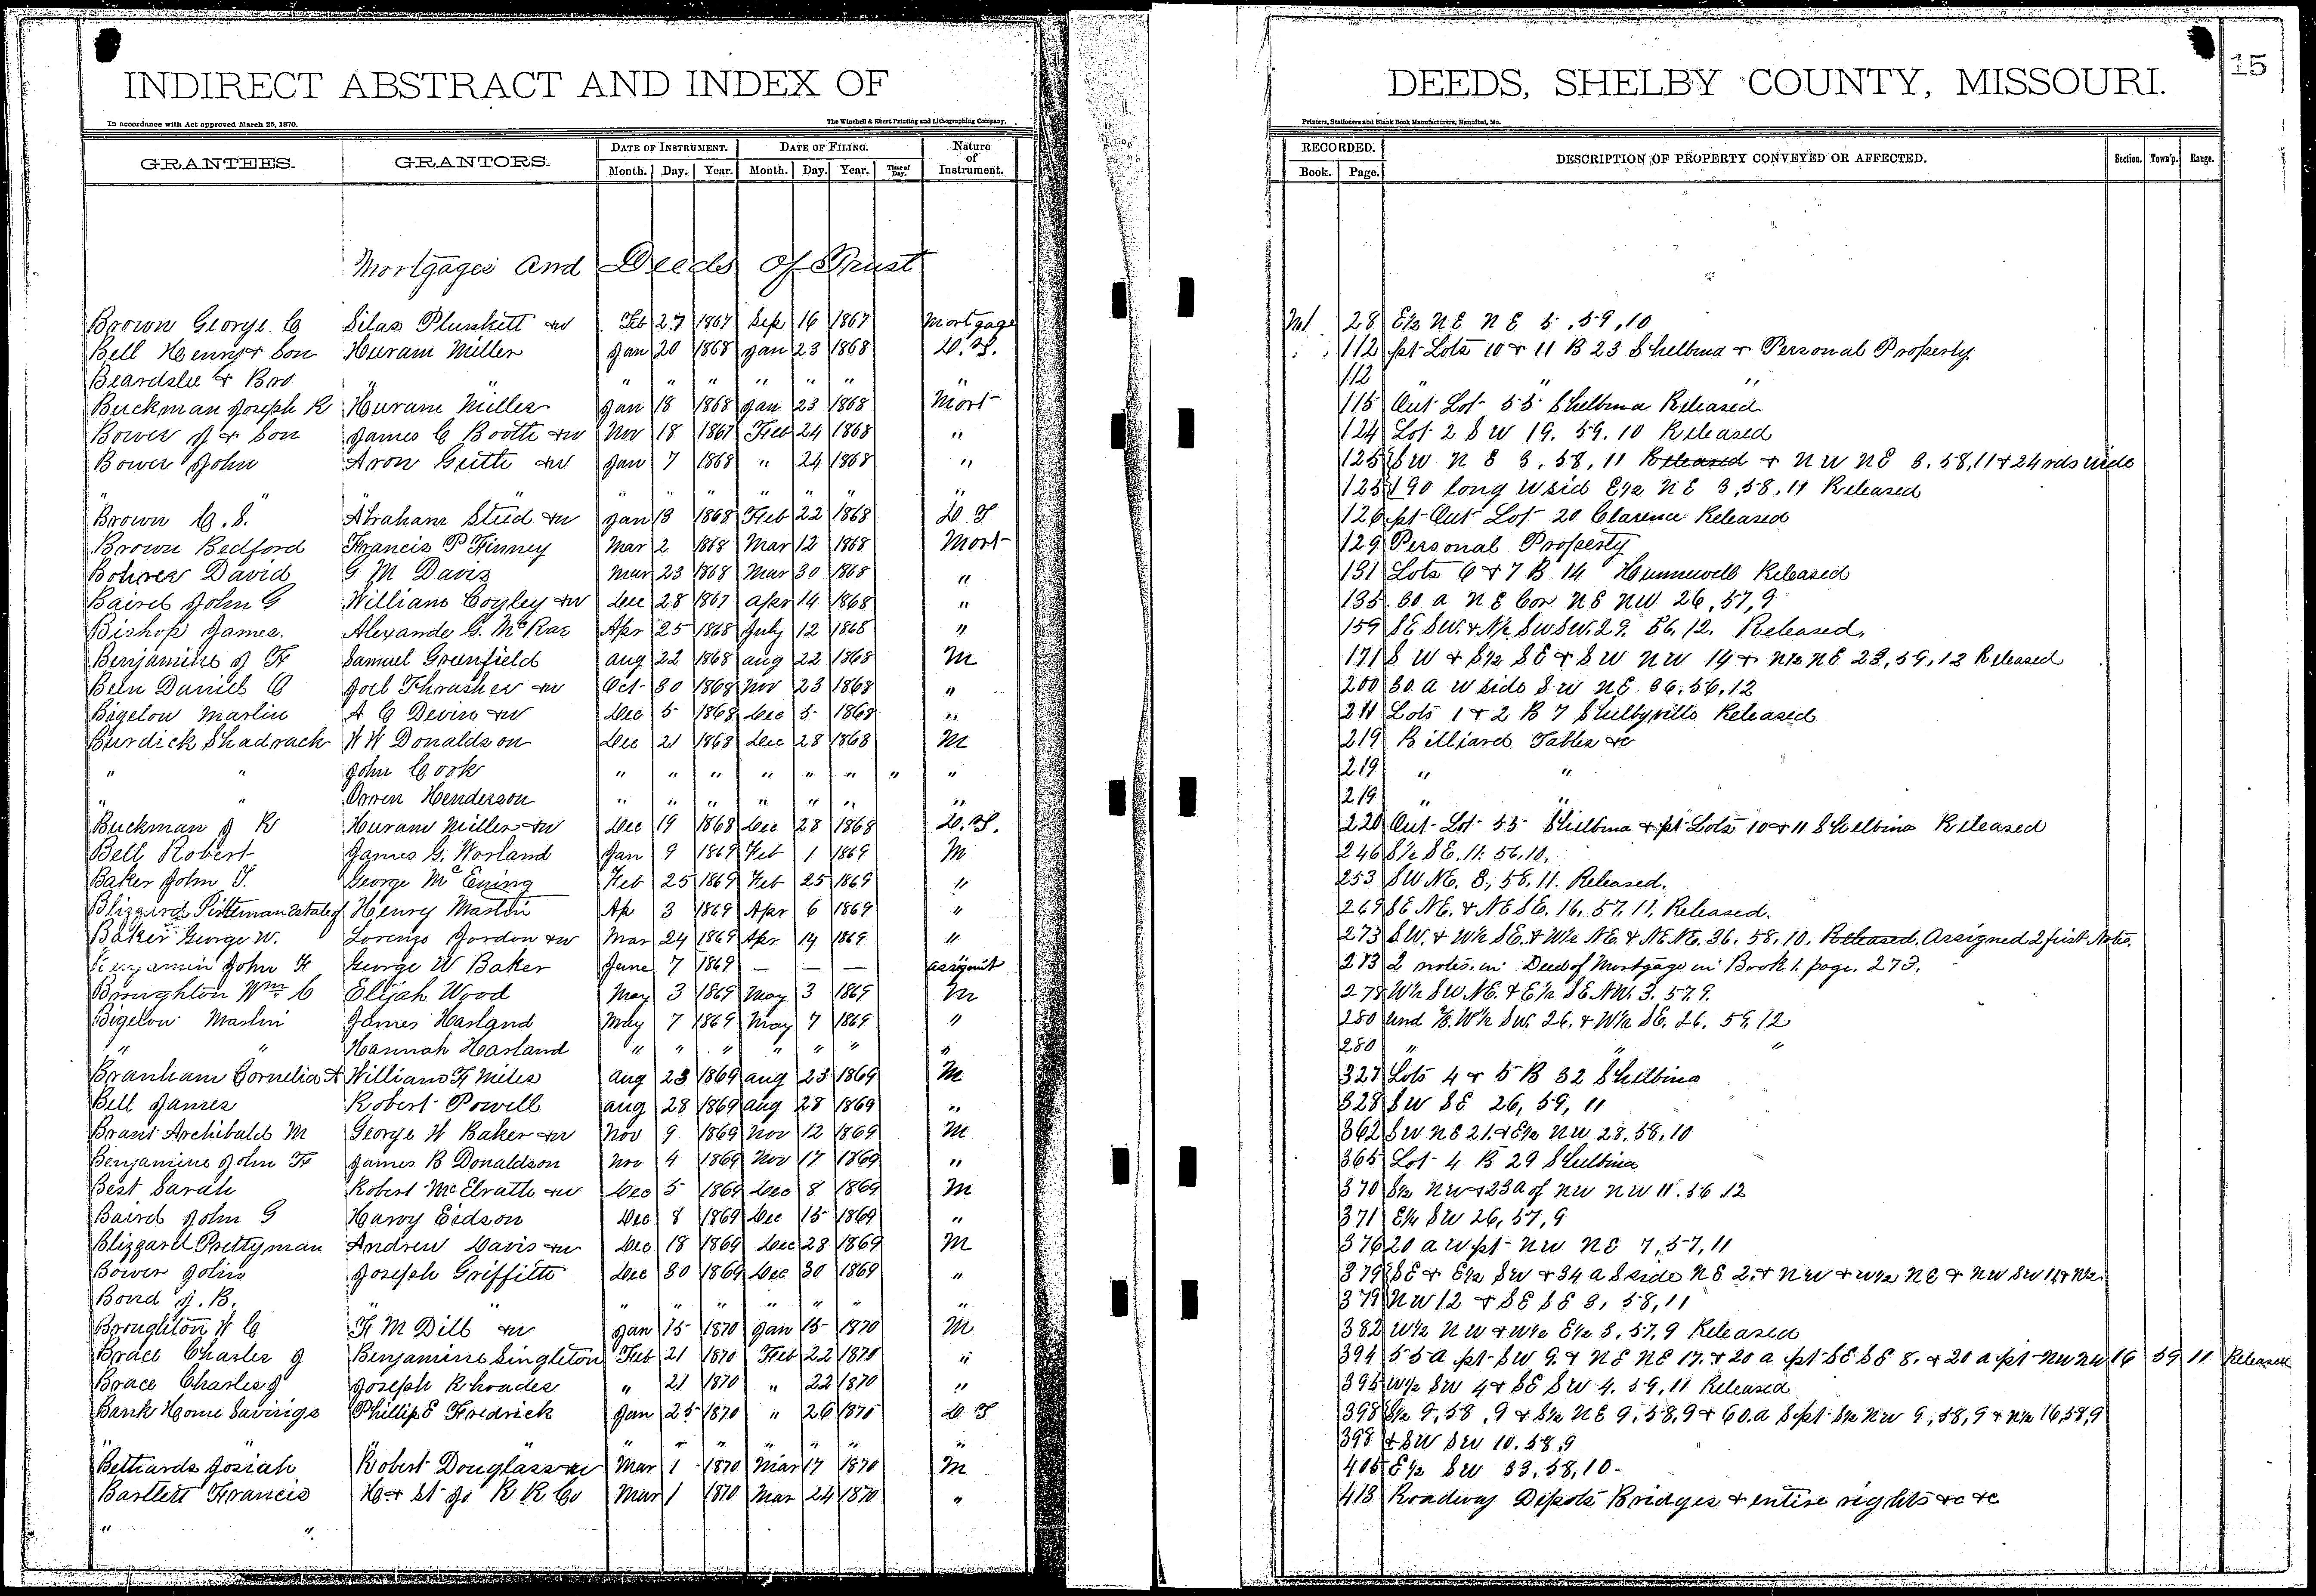 INDIRECT ABSTRACT AND INDEX OF
In accordance with Act approved March 25, 1870.
The Winchell & Ebert Printing and Lithographing Company,
GRANTEES. GRANTORS. DATE OF INSTRUMENT. DATE OF FILING. Nature of Instrument.
Month. Day. Year. Month. Day. Year. Time of Day.
Mortgages and Deeds of Trust
Brown George C Silas Plunkett &w Feb 27 1867 Sep 16 1867 Mortgage
Bell Henry & Son Huram Miller Jan 20 1868 Jan 23 1868 D.T.
Beardslee & Bro " " " " " " " " "
Buckman Joseph R Huram Miller Jan 18 1868 Jan 23 1868 Mort
Bower J & Son James C Booth &w Nov 18 1867 Feb 24 1868 "
Bower John Aron Guth &w Jan 7 1868 " 24 1868 "
" " " " " " " " "
Brown C. S. Abraham Steed &w Jan 13 1868 Feb 22 1868 D T
Brown Bedford Francis P Finney Mar 2 1868 Mar 12 1868 Mort
Bohrer David G M Davis Mar 23 1868 Mar 30 1868 "
Baird John G William Coyley &w Dec 28 1867 Apr 14 1868 "
Bishop James. Alexande G. McRae Apr 25 1868 July 12 1868 "
Benjamine J F Samuel Greenfield Aug 22 1868 Aug 22 1868 M
Been Daniel C Joel Thrasher &w Oct 30 1868 Nov 23 1868 "
Bigelow Martin A C Devin &w Dec 5 1868 Dec 5 1868 "
Burdick Shadrach W W Donaldson Dec 21 1868 Dec 28 1868 M
" " John Cook " " " " " " " "
" " Orren Henderson " " " " " " "
Buckman J R Huram Miller &w Dec 19 1868 Dec 28 1868 D.T.
Bell Robert James G. Worland Jan 9 1869 Feb 1 1869 M
Baker John T. George McEning Feb 25 1869 Feb 25 1869 "
Blizzard Pitteman Estate of Henry Martin Ap 3 1869 Apr 6 1869 "
Baker George W. Lorenzo Jordon &w Mar 24 1869 Apr 14 1869 "
Benjamin John F George W Baker June 7 1869 — — — Assignmt
Broughton Wm C Elijah Wood May 3 1869 May 3 1869 M
Bigelow Martin James Harland May 7 1869 May 7 1869 "
" " Hannah Harland " " " " " " "
Branham Cornelia A William F Miles Aug 23 1869 Aug 23 1869 M
Bell James Robert Powell Aug 28 1869 Aug 28 1869 "
Brant Archibald M George W Baker &w Nov 9 1869 Nov 12 1869 M
Benjamine John F James B Donaldson Nov 4 1869 Nov 17 1869 "
Best Sarah Robert McElrath &w Dec 5 1869 Dec 8 1869 M
Baird John G Harvy Eidson Dec 8 1869 Dec 15 1869 "
Blizzard Prettyman Andrew Davis &w Dec 18 1869 Dec 28 1869 M
Bower John Joseph Griffith Dec 30 1869 Dec 30 1869 "
Bond J. B. " " " " " " " " "
Broughton W C F M Dill &w Jan 15 1870 Jan 15 1870 M
Brace Charles J Benjamine Singleton Feb 21 1870 Feb 22 1870 "
Brace Charles J Joseph Rhoades " 21 1870 " 22 1870 "
Bank Home Savings Phillip E Fredrick Jan 25 1870 " 26 1870 D T
" " " " " " " " "
Bethards Josiah Robert Douglass &w Mar 1 1870 Mar 17 1870 M
Bartlett Francis H & St Jo R R Co Mar 1 1870 Mar 24 1870 "
" "
DEEDS, SHELBY COUNTY, MISSOURI.
15
Printers, Stationers and Blank Book Manufacturers, Hannibal, Mo.
RECORDED. DESCRIPTION OF PROPERTY CONVEYED OR AFFECTED. Section. Town'p. Range.
Book. Page.
28 E½ NE NE 5, 59, 10
112 pt Lots 10 & 11 B 23 Shelbina & Personal Property
112 " " "
115 Out Lot 55 Shelbina Released
124 Lot 2 SW 19. 59. 10 Released
125 SW NE 3, 58, 11 Released & NW NE 3. 58, 11 & 24 rds wide
125 190 long W sid E½ NE 3, 58, 11 Released
126 pt Out Lot 20 Clarence Released
129 Personal Property
131 Lots 6 & 7 B 14 Hunnewell Released
135 60 a NE Cor NE NW 26, 57, 9
159 SE SW. & N½ SW SW. 29. 56. 12. Released.
171 SW & S½ SE & SW NW 14 & N½ NE 23, 59, 12 Released
200 30 a W side SW NE. 36, 56, 12
211 Lots 1 & 2 B 7 Shelbyville Released
219 Billiard Tables &c
219 " "
219 " "
220 Out Lot 55 Shelbina & pt Lots 10 & 11 Shelbina Released
246 S½ SE. 11. 56. 10.
253 SW NE. 3, 58, 11. Released.
269 SE NE. & NE SE. 16. 57. 11. Released.
273 SW. & W½ SE. & W½ NE. & NE NE. 36. 58. 10. Released. Assigned 2 first Notes.
273 2 notes in Deed of Mortgage in Book 1. page. 273.
278 W½ SW NE. & E½ SE NW. 3. 57. 9.
280 und W½ SW. 26. & W½ SE. 26. 59. 12
280 " " "
327 Lots 4 & 5 B 32 Shelbina
328 SW SE 26, 59, 11
362 SW NE 21. & E½ NW 28. 58. 10
365 Lot 4 B 29 Shelbina
370 S½ NW & 23 a of NW NW 11. 56 12
371 E½ SW 26, 57, 9
376 20 a W pt NW NE 7, 57, 11
379 SE & E½ SW & 34 a S side NE 2. & NW & W½ NE & NW SW 11 & N½
379 NW 12 & SE SE 3, 58, 11
382 W½ NW & W½ E½ 3, 57, 9 Released
394 55 a pt SW 9. & NE NE 17. & 20 a pt SE SE 8. & 20 a pt NW NW 16 59 11 Released
395 W½ SW 4 & SE SW 4. 59, 11 Released
398 S½ 9, 58, 9 & S½ NE 9, 58, 9 & 60. a S pt S½ NW 9, 58, 9 & N½ 16, 58, 9
398 & SW SW 10. 58. 9
405 E½ SW 33, 58, 10
413 Roadway Depots Bridges & entire rights &c &c